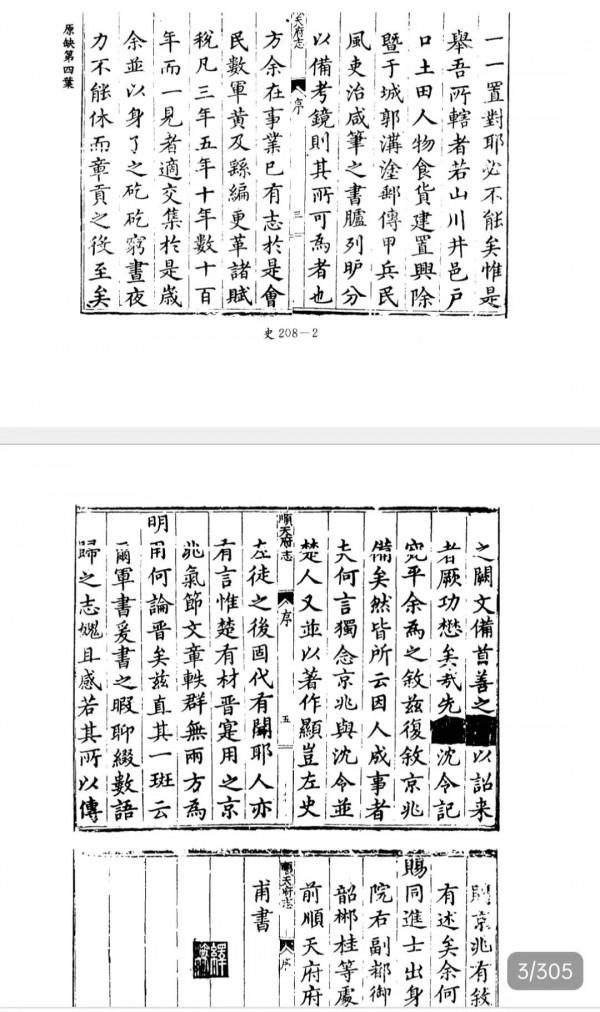 一一置對耶必不能矣惟是
舉吾所轄者若山川井邑戶
口土田人物食貨建置興除
暨于城郭溝塗郵傳甲兵民
風吏治咸筆之書臚列眆分
以備考鏡則其所可為者也
天府志 序 三
方余在事業已有志於是會
民數軍黃及繇編更革諸賦
稅凡三年五年十年數十百
年而一見者適交集於是歲
余並以身了之矻矻窮晝夜
力不能休而章貢之役至矣
原缺第四葉
史 208—2
之闕文備首善之以詔来
者厥功懋矣哉先沈令記
宛平余為之敘茲復敘京兆
備矣然皆所云因人成事者
夫何言獨念京兆與沈令並
楚人又並以著作顯豈左史
順天府志 序 五
左徒之後固代有聞耶人亦
有言惟楚有材晉寔用之京
兆氣節文章軼群無兩方為
明用何論晉矣茲直其一斑云
爾軍書爰書之暇聊綴數語
歸之志媿且感若其所以傳
則京兆有敘
有述矣余何
賜同進士出身
院右副都御
韶郴桂等處
前順天府府
順天府志 序
甫書
3/305